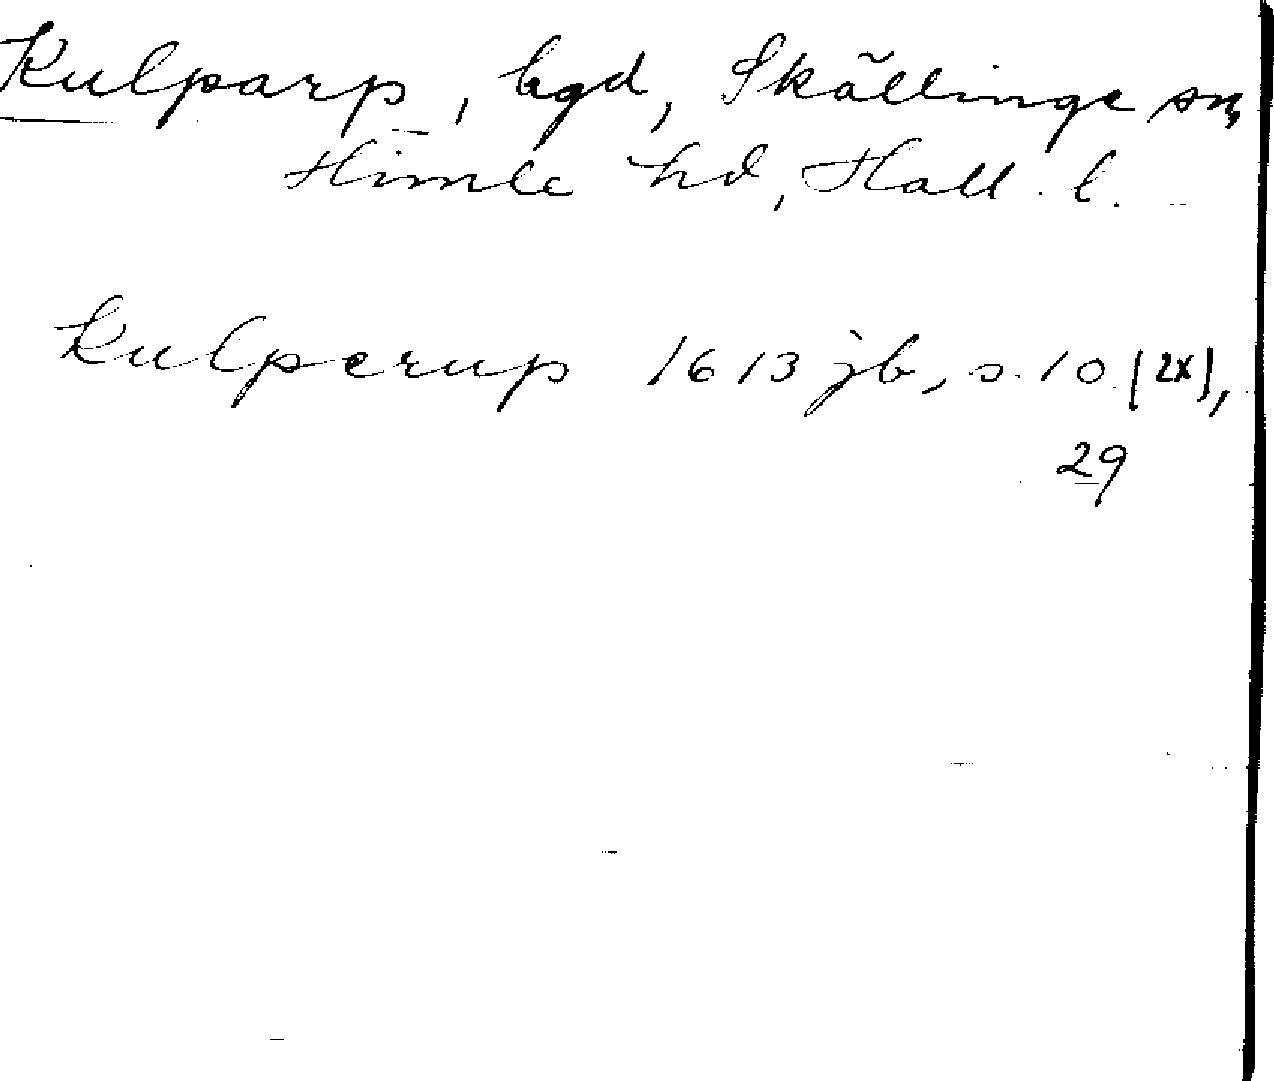 Kulparp, bgd, Skällinge sn,
Himle hd, Hall. l.
Kulperup 1613 jb, s. 10 (2x),
29